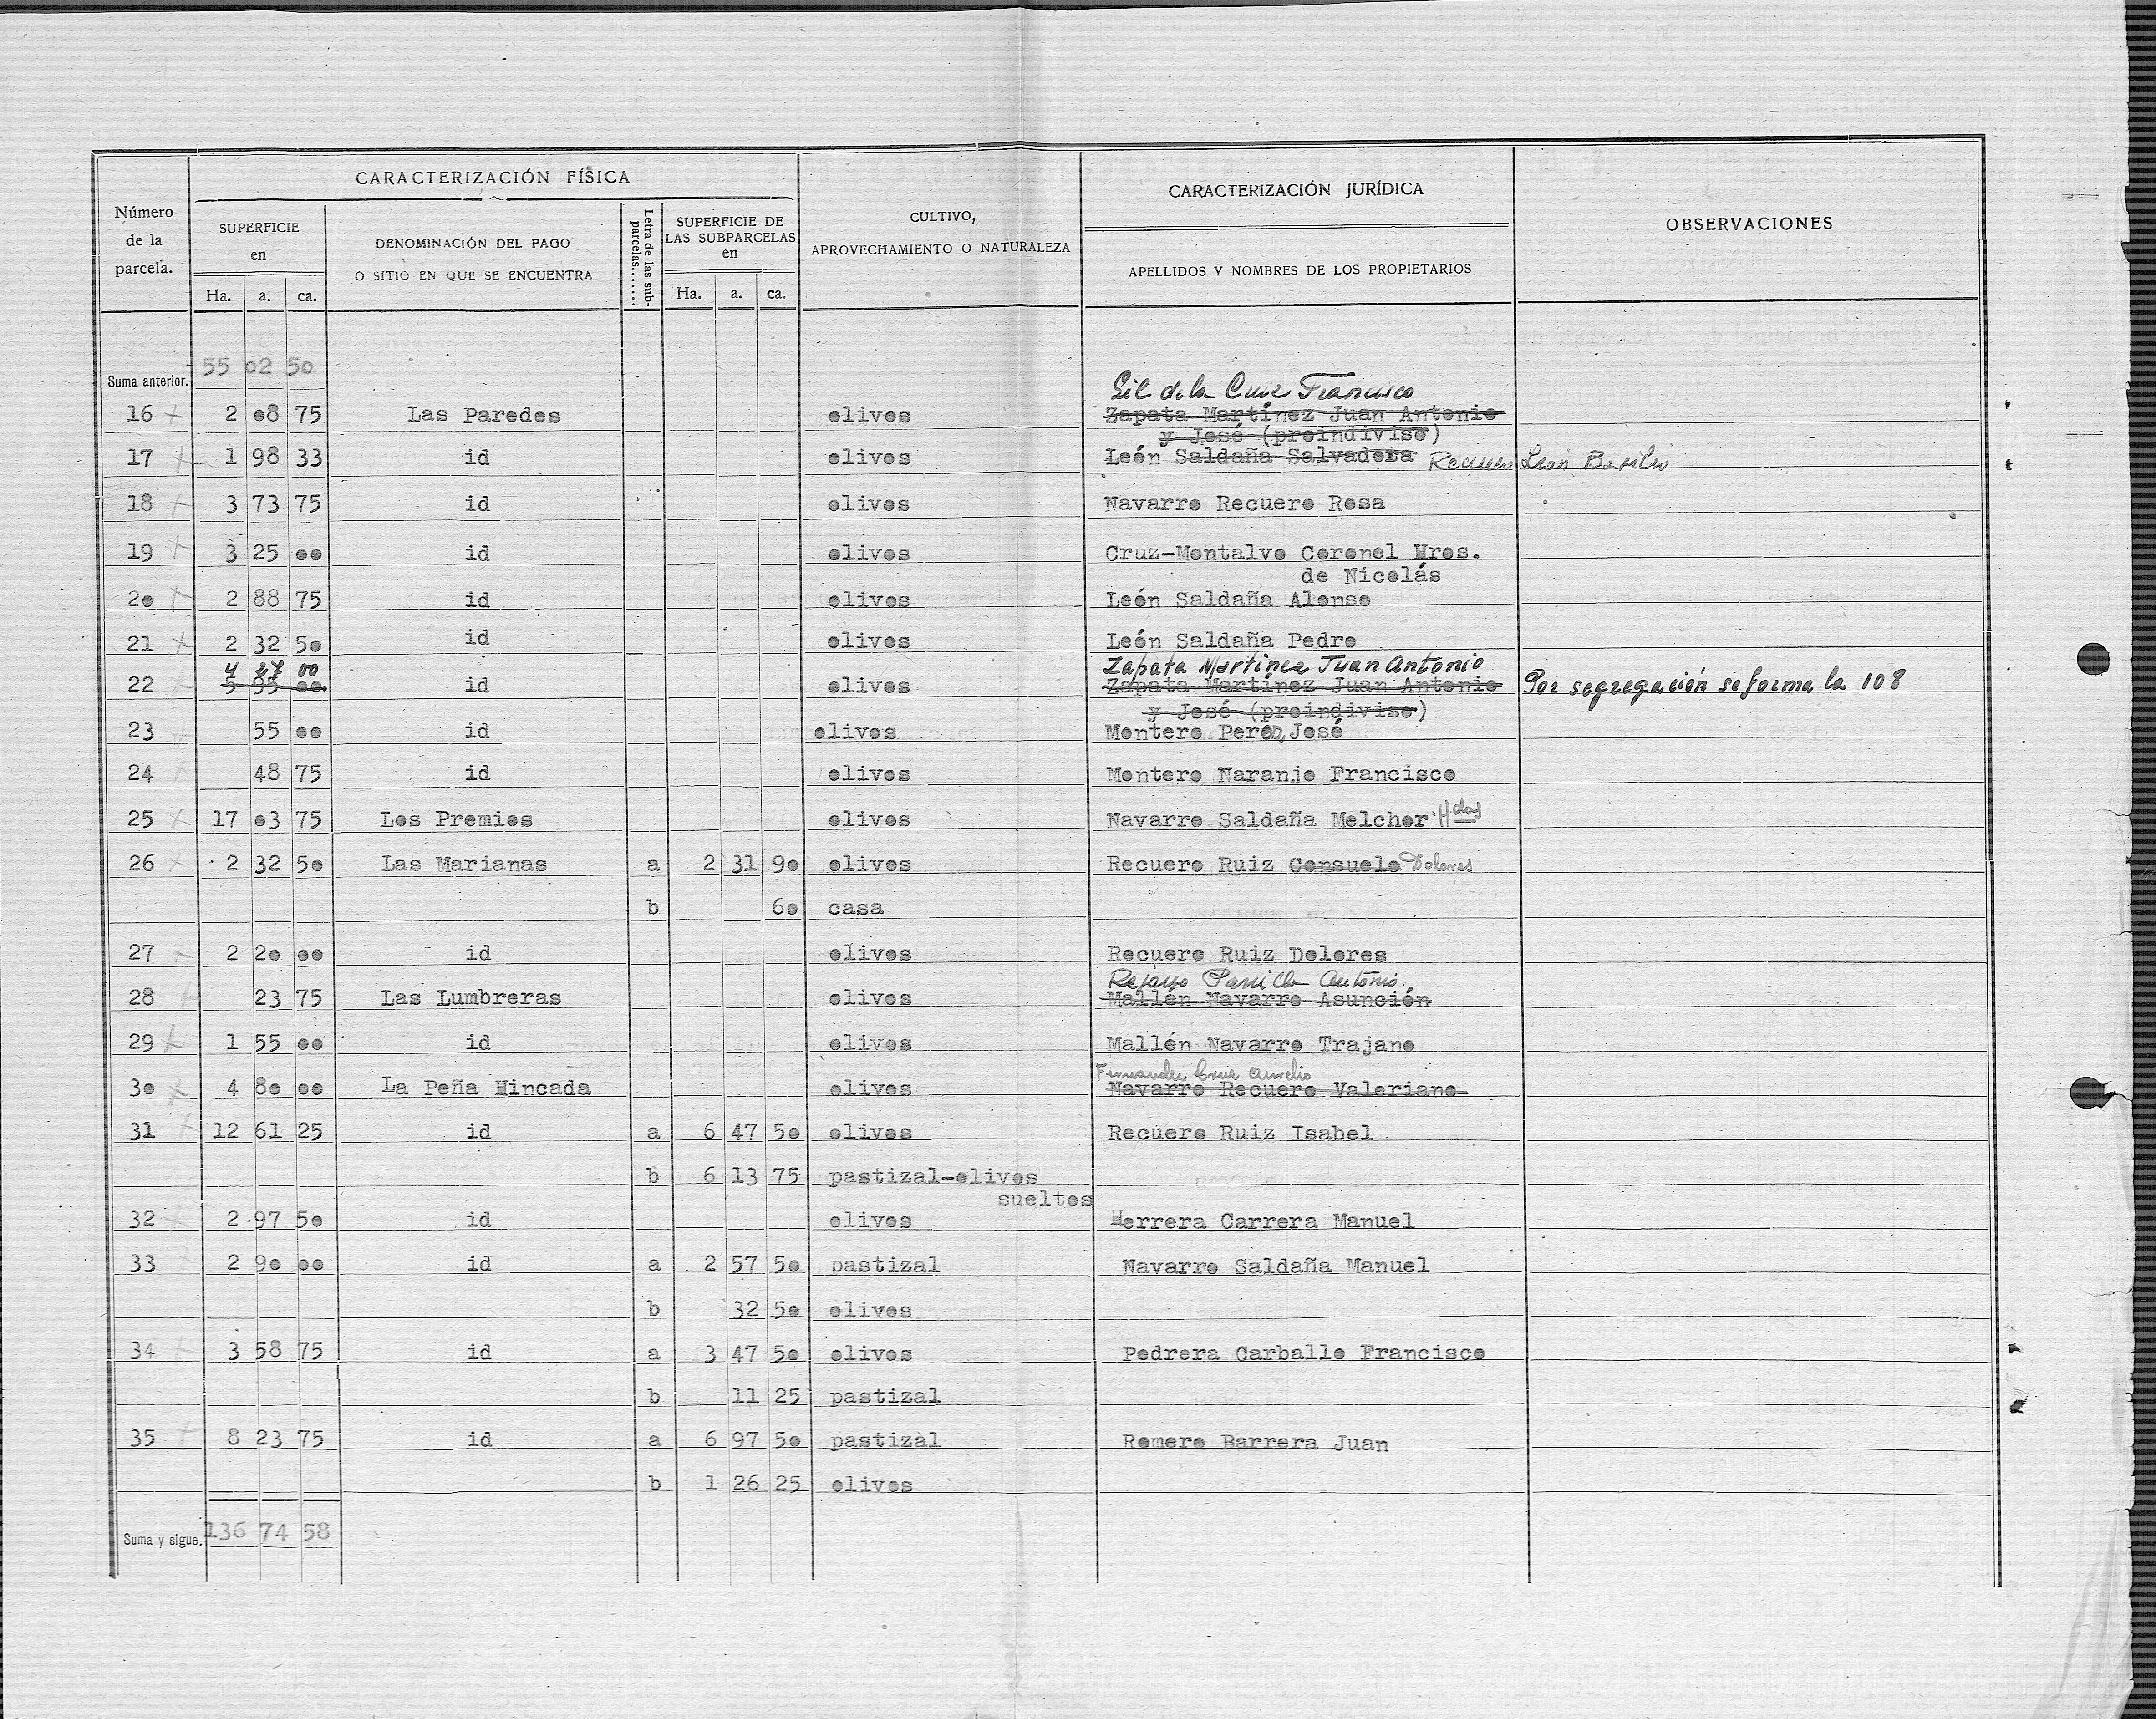 CARACTERIZACIÓN FÍSICA
CARACTERIZACIÓN JURÍDICA
Número de la parcela.
SUPERFICIE en
DENOMINACIÓN DEL PAGO O SITIO EN QUE SE ENCUENTRA
Letra de las sub-parcelas.......
SUPERFICIE DE LAS SUBPARCELAS en
CULTIVO, APROVECHAMIENTO O NATURALEZA
APELLIDOS Y NOMBRES DE LOS PROPIETARIOS
OBSERVACIONES
Ha. a. ca. Ha. a. ca.
Suma anterior. 55 02 50
Gil de la Cruz Francisco
16 2 08 75 Las Paredes olivos Zapata Martínez Juan Antonio
y José (proindiviso)
17 1 98 33 id olivos León Saldaña Salvadora Recuero León Basilio
18 3 73 75 id olivos Navarro Recuero Rosa
19 3 25 00 id olivos Cruz-Montalvo Coronel Hros.
de Nicolás
20 2 88 75 id olivos León Saldaña Alonso
21 2 32 50 id olivos León Saldaña Pedro
4 27 00 Zapata Martinez Juan Antonio
22 5 95 00 id olivos Zapata Martínez Juan Antonio Por segregación se forma la 108
y José (proindiviso)
23 55 00 id olivos Montero Perez, José
24 48 75 id olivos Montero Naranjo Francisco
25 17 03 75 Los Premios olivos Navarro Saldaña Melchor Hdos
26 2 32 50 Las Marianas a 2 31 90 olivos Recuero Ruiz Consuelo Dolores
b 60 casa
27 2 20 00 id olivos Recuero Ruiz Dolores
Antonio
28 23 75 Las Lumbreras olivos Mallén Navarro Asunción
29 1 55 00 id olivos Mallén Navarro Trajano
Fernandez Cruz Aurelio
30 4 80 00 La Peña Hincada olivos Navarro Recuero Valeriano
31 12 61 25 id a 6 47 50 olivos Recuero Ruiz Isabel
b 6 13 75 pastizal-olivos
sueltos
32 2 97 50 id olivos Herrera Carrera Manuel
33 2 90 00 id a 2 57 50 pastizal Navarro Saldaña Manuel
b 32 50 olivos
34 3 58 75 id a 3 47 50 olivos Pedrera Carballo Francisco
b 11 25 pastizal
35 8 23 75 id a 6 97 50 pastizàl Romero Barrera Juan
b 1 26 25 olivos
Suma y sigue. 136 74 58